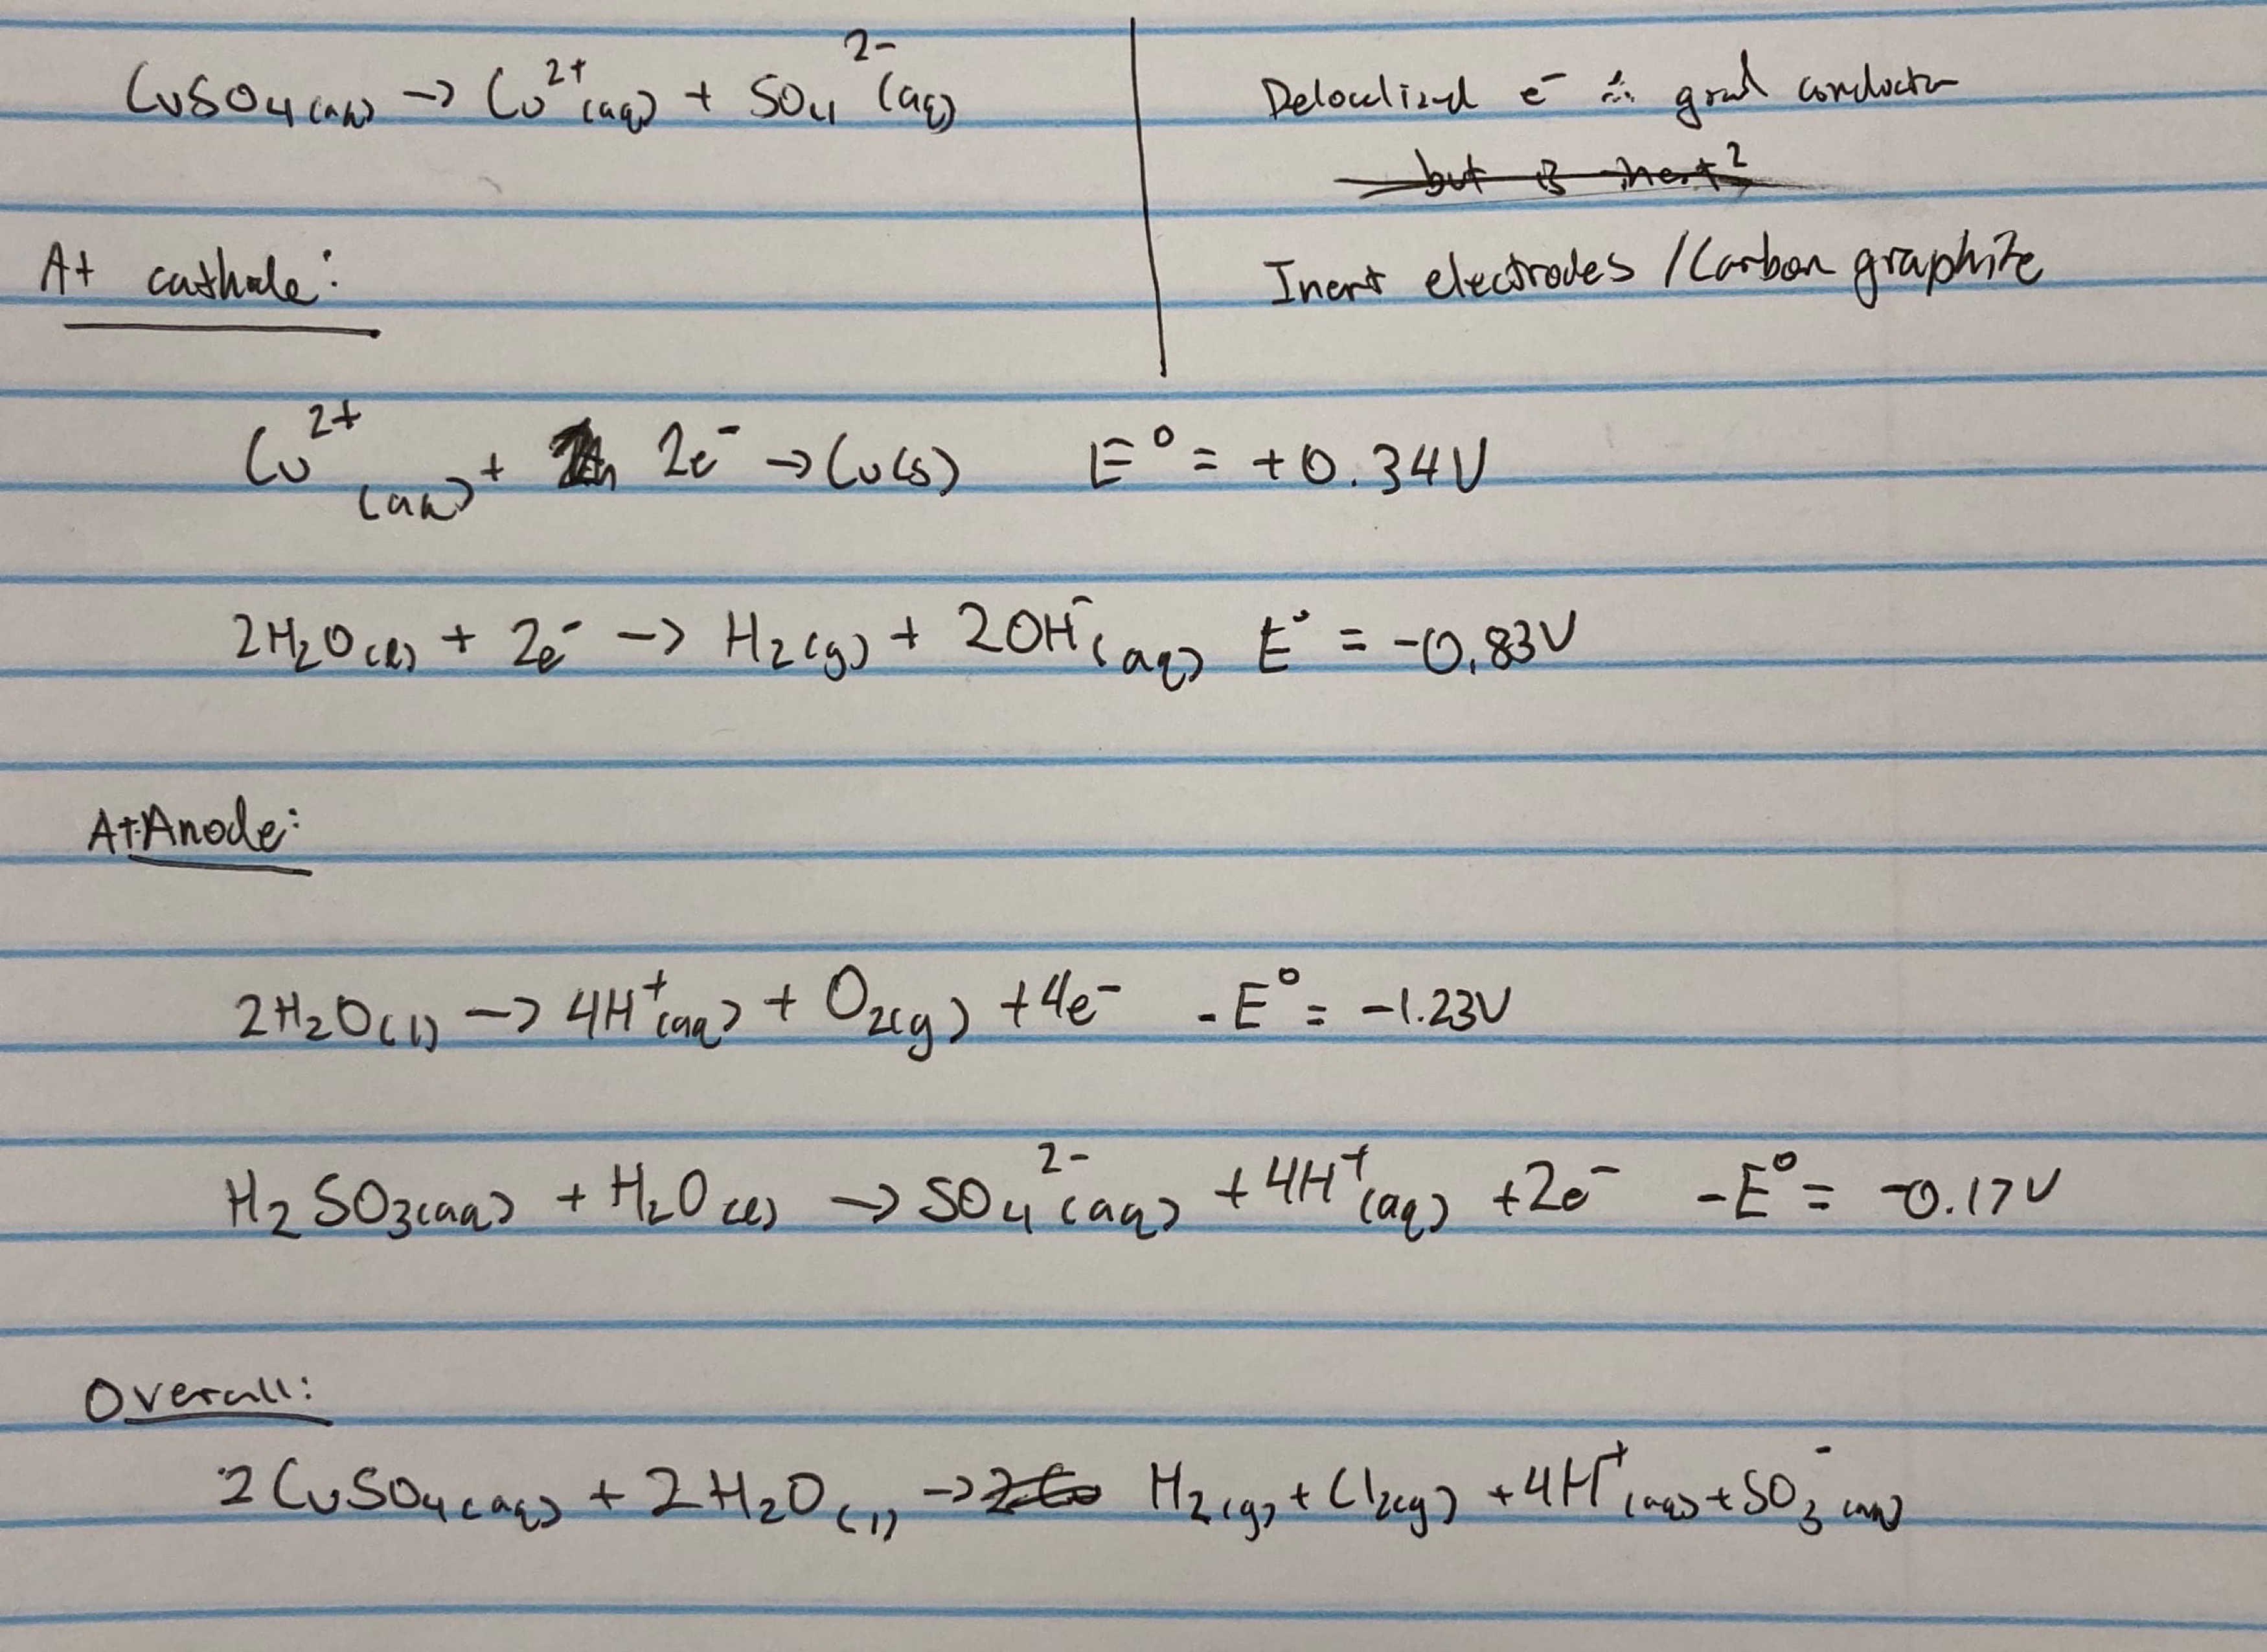 CuSO₄(aq) → Cu²⁺(aq) + SO₄²⁻(aq)
Delocalized e⁻ ∴ good conductor
but is inert?
Inert electrodes / Carbon graphite
At cathode:
Cu²⁺(aq) + 2e⁻ → Cu(s) E° = +0.34V
2H₂O(l) + 2e⁻ → H₂(g) + 2OH⁻(aq) E° = -0.83V
At Anode:
2H₂O(l) → 4H⁺(aq) + O₂(g) + 4e⁻ -E° = -1.23V
H₂SO₃(aq) + H₂O(l) → SO₄²⁻(aq) + 4H⁺(aq) + 2e⁻ -E° = -0.17V
Overall:
2CuSO₄(aq) + 2H₂O(l) → H₂(g) + Cl₂(g) + 4H⁺(aq) + SO₃⁻(aq)